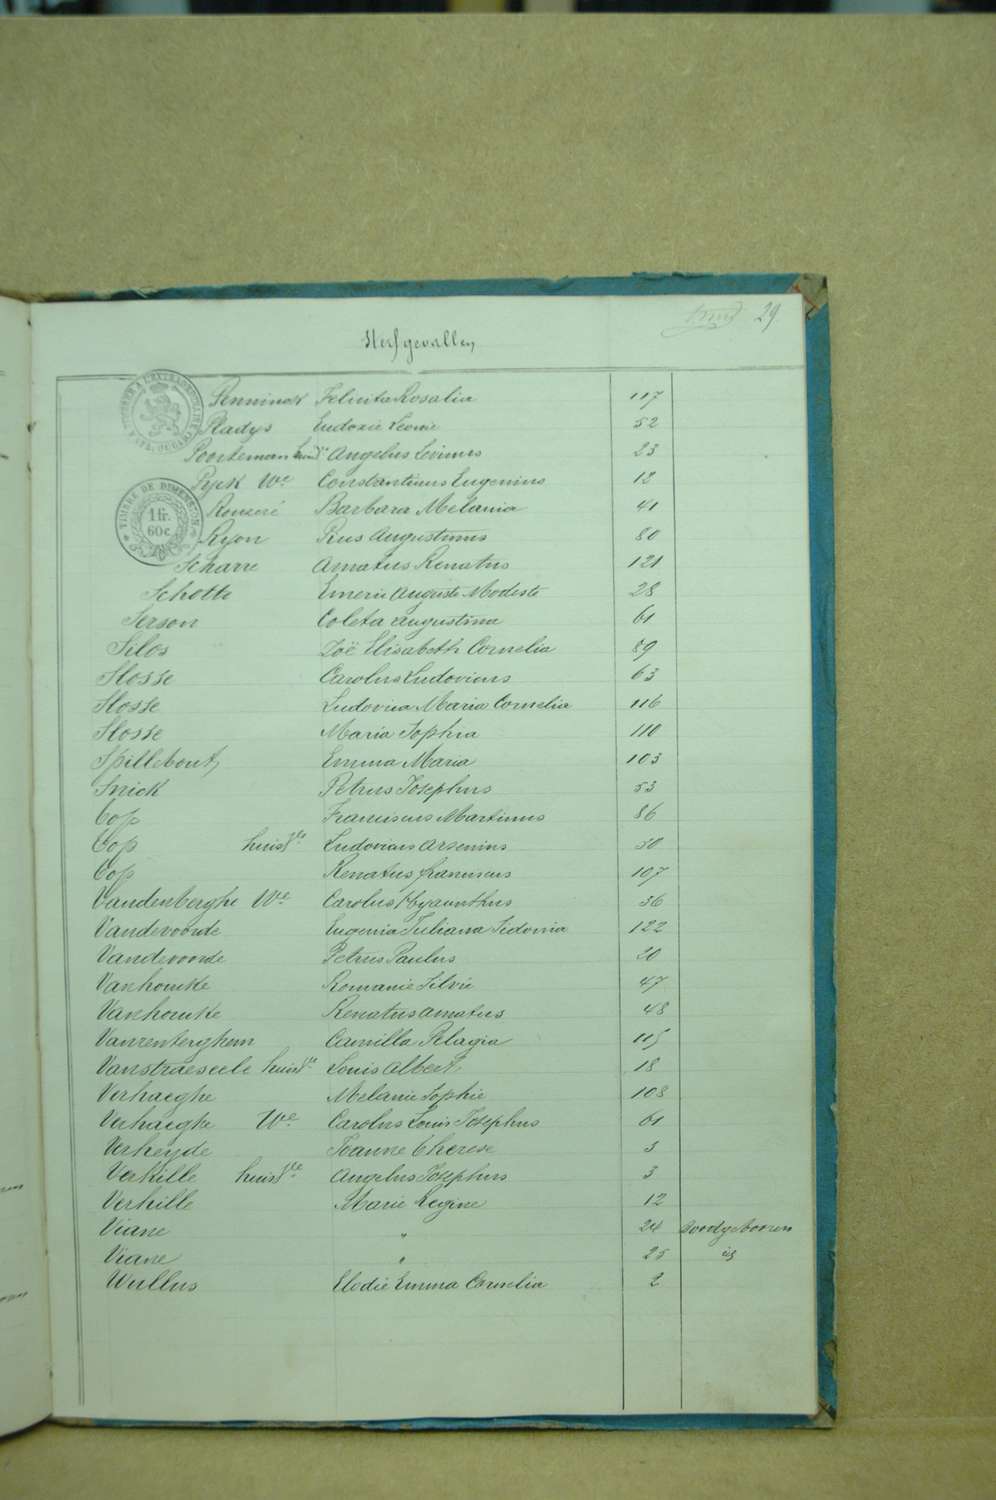 29
Sterfgevallen
TIMBRE DE DIMENSION
1 fr.
60 c
Penninck Felicita Rosalia 117
Pladys Eudoxie Leonie 52
Poorteman Angelus Livinus 23
Pyck We Constantinus Eugenius 12
Barbara Melania 41
Ryon Pius Augustinus 80
Scharre Amatus Renatus 121
Schotte Emerie Auguste Modeste 28
Serson Coleta Augustina 61
Silos Zoë Elisabeth Cornelia 89
Slosse Carolus Ludovicus 63
Slosse Ludovica Maria Cornelia 116
Slosse Maria Sophia 110
Spillebout Emma Maria 103
Snick Petrus Josephus 53
Cop Franciscus Martinus 86
Cop huisvte Ludovicus Arsenius 50
Cop Renatus franciscus 107
Vandenberghe We Carolus Hyacinthus 36
Vandevoorde Eugenia Juliana Sidonia 122
Vandevoorde Petrus Paulus 20
Vanhoucke Romanie Silvie 47
Vanhoucke Renatus Amatus 48
Vanrenterghem Camilla Pelagia 115
Vanstraeseele huisvte Louis Albert 18
Verhaeghe Melanie Sophie 108
Verhaeghe We Carolus Louis Josephus 61
Verheyde Joanne Therese 5
Verhille huisvte Angelus Josephus 3
Verhille Marie Regine 12
Viane " 24 doodgebooren
Viane " 25 id
Wullus Elodie Emma Cornelia 2